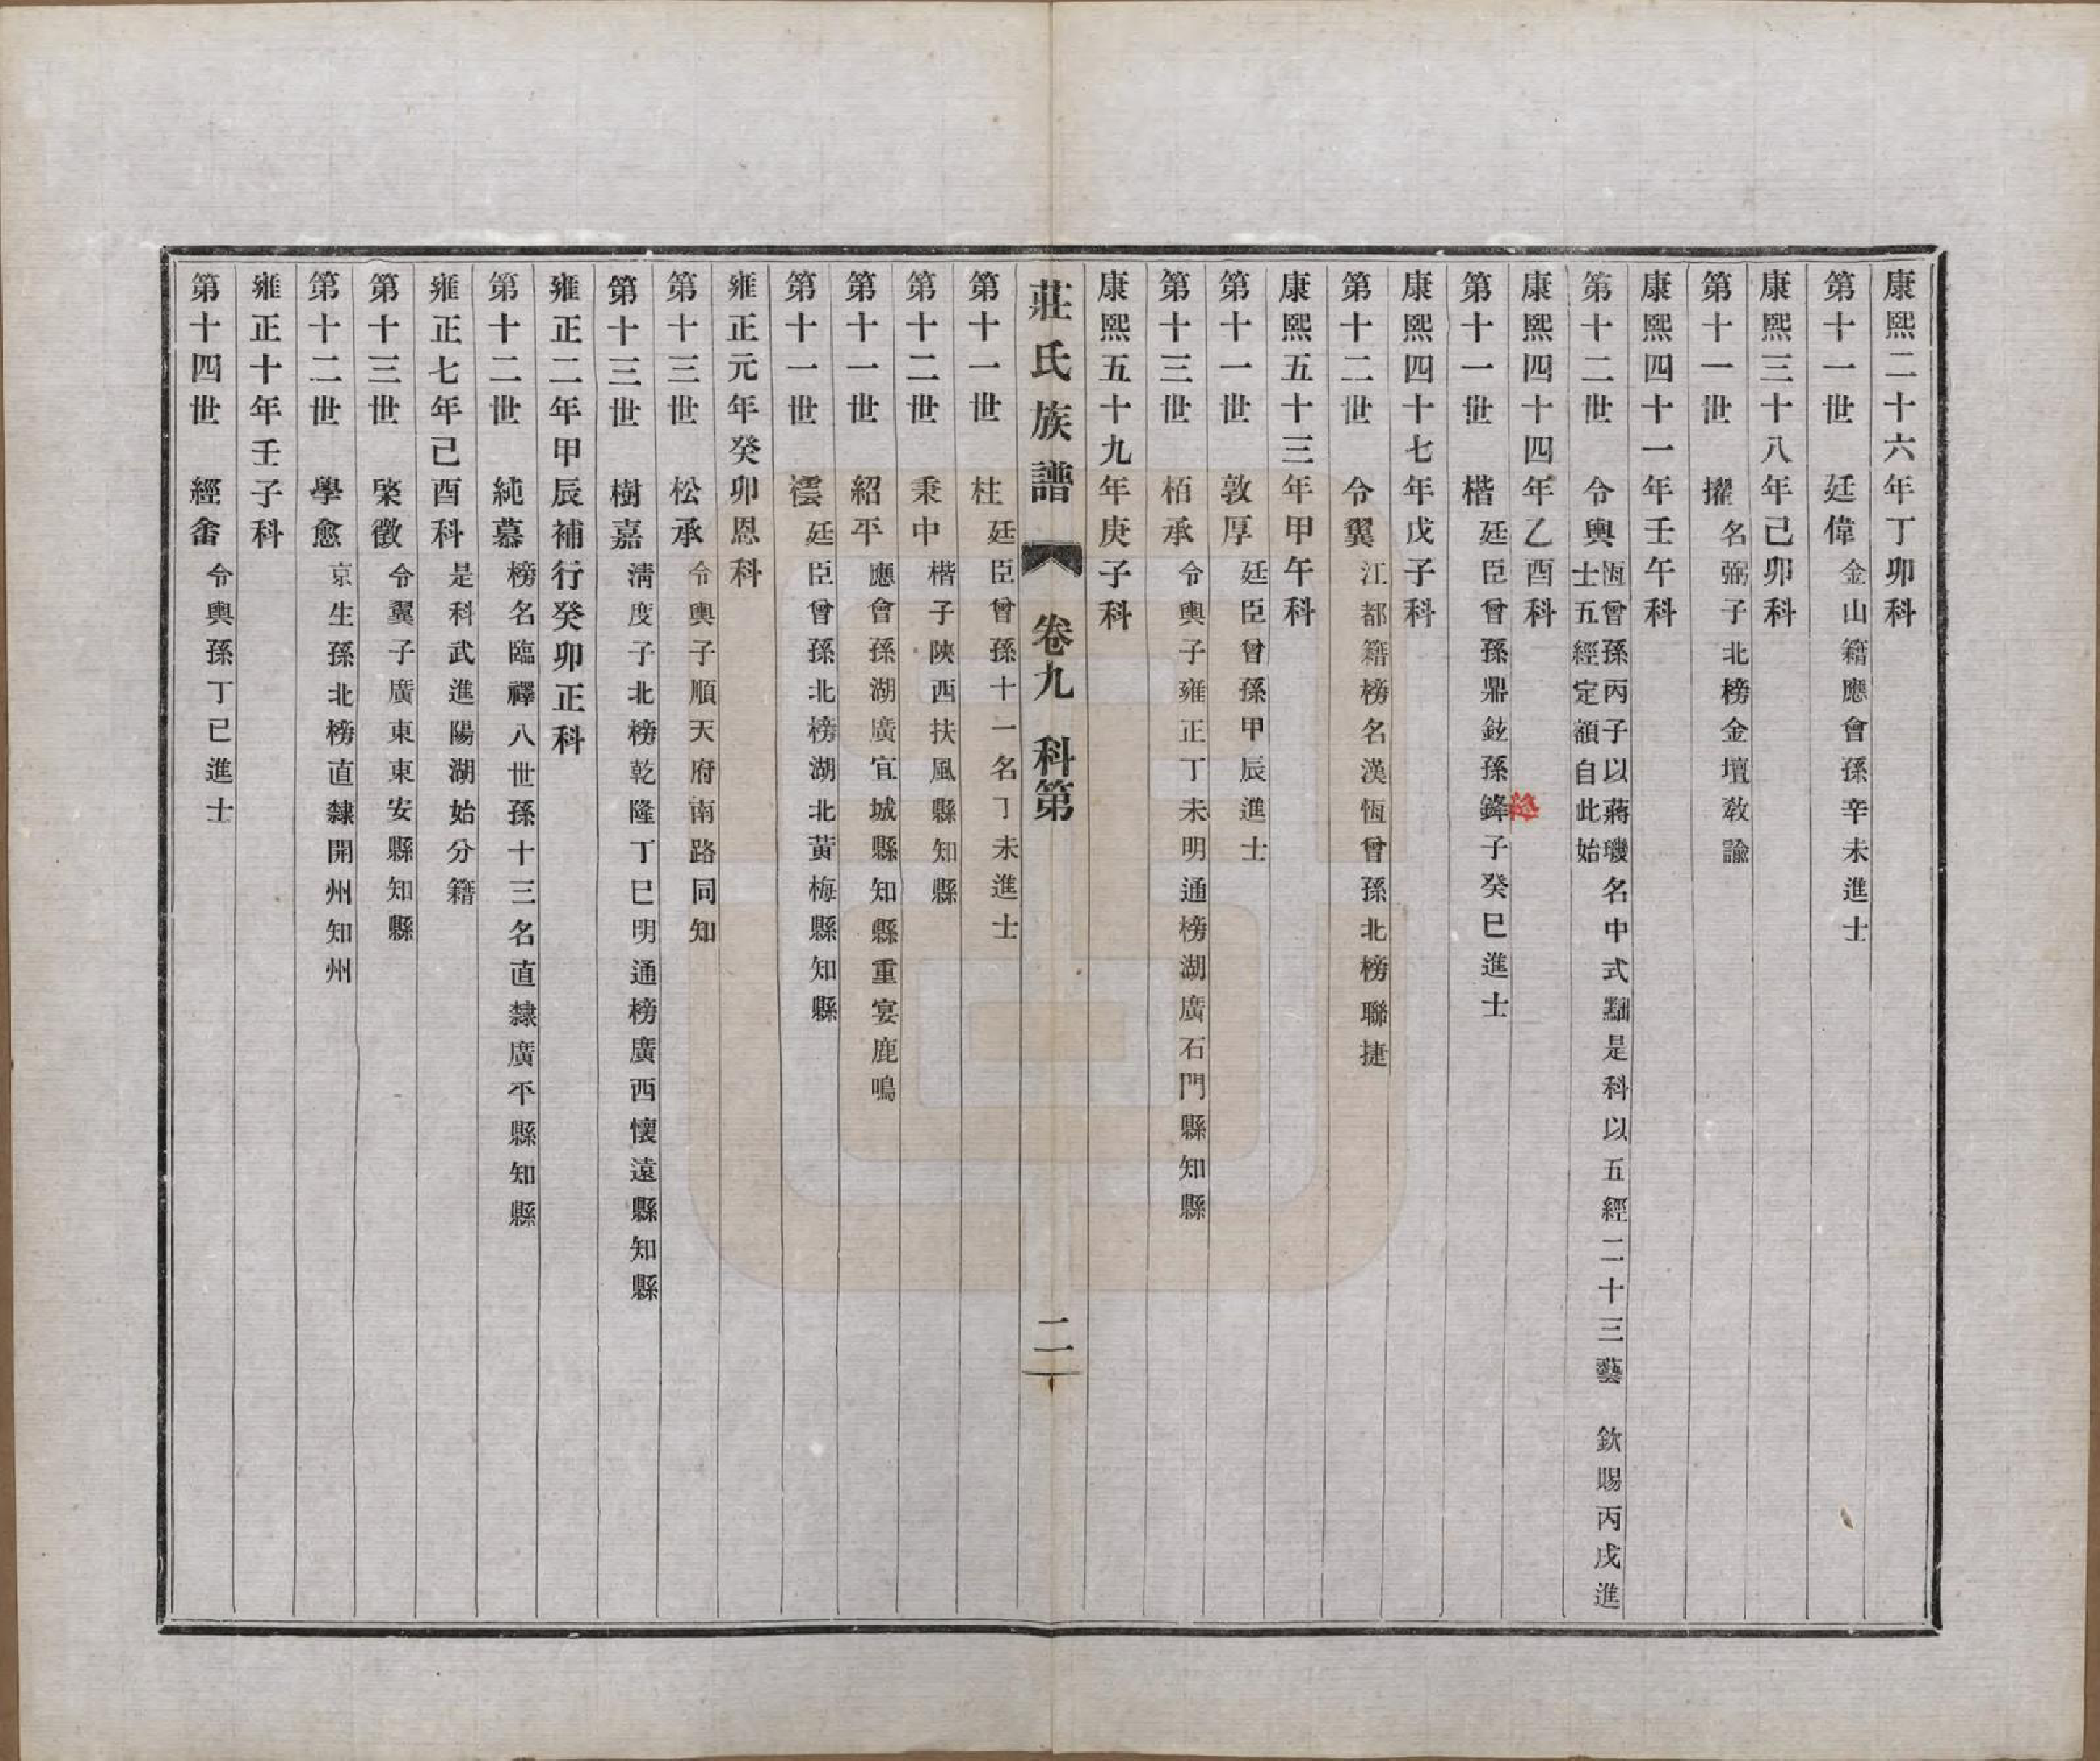 康熙二十六年丁卯科
第十一世　廷偉　金山籍應會孫辛未進士
康熙三十八年己卯科
第十一世　擢　名弼子北榜金壇教諭
康熙四十一年壬午科
第十二世　令輿　恆曾孫丙子以蔣璣名中式黜是科以五經二十三藝　欽賜丙戌進
士五經定額自此始
康熙四十四年乙酉科
第十一世　楷　廷臣曾孫鼎鉉孫鋒子癸巳進士
康熙四十七年戊子科
第十二世　令翼　江都籍榜名漢恆曾孫北榜聯捷
康熙五十三年甲午科
第十一世　敦厚　廷臣曾孫甲辰進士
第十三世　栢承　令輿子雍正丁未明通榜湖廣石門縣知縣
康熙五十九年庚子科
莊氏族譜　卷九　科第　二
第十一世　柱　廷臣曾孫十一名丁未進士
第十二世　秉中　楷子陝西扶風縣知縣
第十一世　紹平　應會孫湖廣宜城縣知縣重宴鹿鳴
第十一世　橒　廷臣曾孫北榜湖北黃梅縣知縣
雍正元年癸卯恩科
第十三世　松承　令輿子順天府南路同知
第十三世　樹嘉　清度子北榜乾隆丁巳明通榜廣西懷遠縣知縣
雍正二年甲辰補行癸卯正科
第十二世　純慕　榜名臨禪八世孫十三名直隸廣平縣知縣
雍正七年己酉科　是科武進陽湖始分籍
第十三世　棨徵　令翼子廣東東安縣知縣
第十二世　學愈　京生孫北榜直隸開州知州
雍正十年壬子科
第十四世　經畬　令輿孫丁巳進士